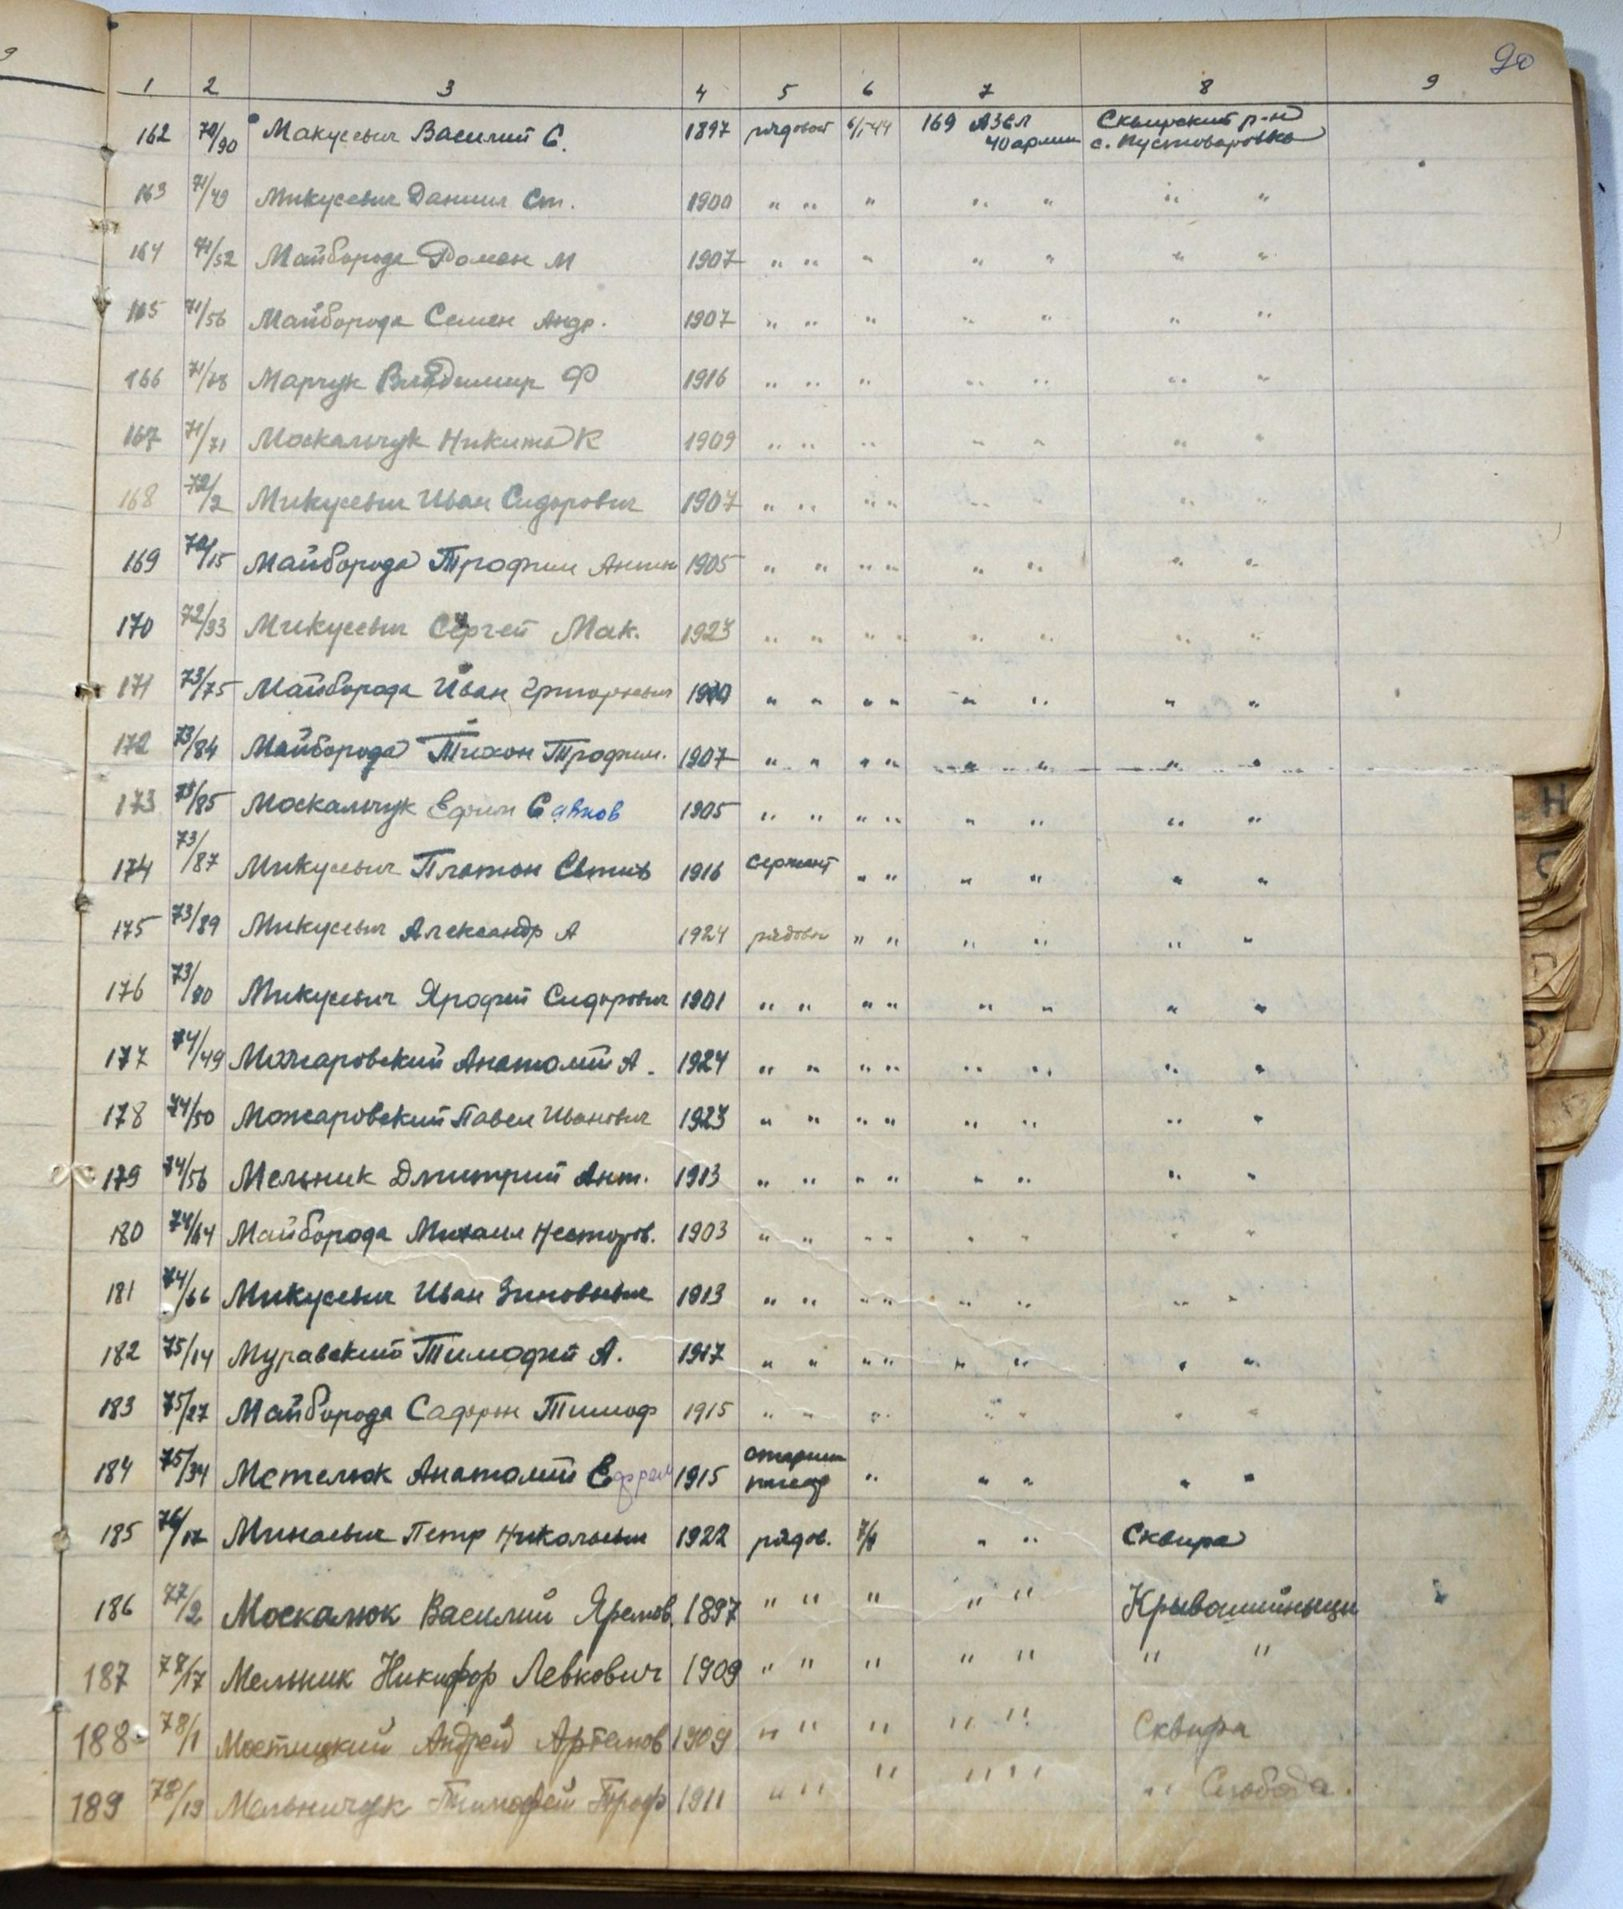 90
1 2 3 4 5 6 7 8 9
162 70/90 Макусевич Василий С. 1897 рядовой 6/I-44 169 АЗСП 40 армии Сквирский р-н с. Пустоваровка
163 71/49 Микусевич Даниил Ст. 1900 " " " " " " "
164 71/52 Майборода Домен М 1907 " " " " " " "
165 71/56 Майборода Семен Андр. 1907 " " " " " " "
166 71/68 Марчук Владимир Ф 1916 " " " " " " "
167 71/71 Москальчук Никита К 1909 " " " " " " "
168 72/2 Микусевич Иван Сидорович 1907 " " " " " " " "
169 72/15 Майборода Трофим Антон 1905 " " " " " " " "
170 72/33 Микусевич Сергей Мак. 1923 " " " " " " " "
171 73/75 Майборода Иван Григорьевич 1900 " " " " " " " "
172 73/84 Майборода Тихон Трофим. 1907 " " " " " " " "
173 73/85 Москальчук Ефим Савков 1905 " " " " " " " "
174 73/87 Микусевич Платон 1916 сержант " " " " " "
175 73/89 Микусевич Александр А 1924 рядовой " " " " " "
176 73/90 Микусевич Ярофей Сидорович 1901 " " " " " " " "
177 74/49 Можаровский Анатолий А. 1924 " " " " " " " "
178 74/50 Можаровский Павел Иванович 1923 " " " " " " " "
179 74/56 Мельник Дмитрий Ант. 1913 " " " " " " " "
180 74/64 Майборода Михаил Несторов. 1903 " " " " " " " "
181 74/66 Микусевич Иван Зиновьевич 1913 " " " " " " " "
182 75/14 Муравский Тимофей А. 1917 " " " " " " " "
183 75/27 Майборода Сафрон Тимоф 1915 " " " " " " "
184 75/34 Метелюк Анатолий Ефрем 1915 старший писарь " " " " "
185 76/17 Минаевич Петр Николаевич 1922 рядов. 7/I " " Сквира
186 77/2 Москалюк Василий Яремов. 1897 " " " " " Крывошийныци
187 78/17 Мельник Никифор Левкович 1909 " " " " " " "
188 78/1 Мостицкий Андрей Артемов 1909 " " " " " Сквира
189 78/19 Мельничук Тимофей Троф 1911 " " " " " " Слобода.